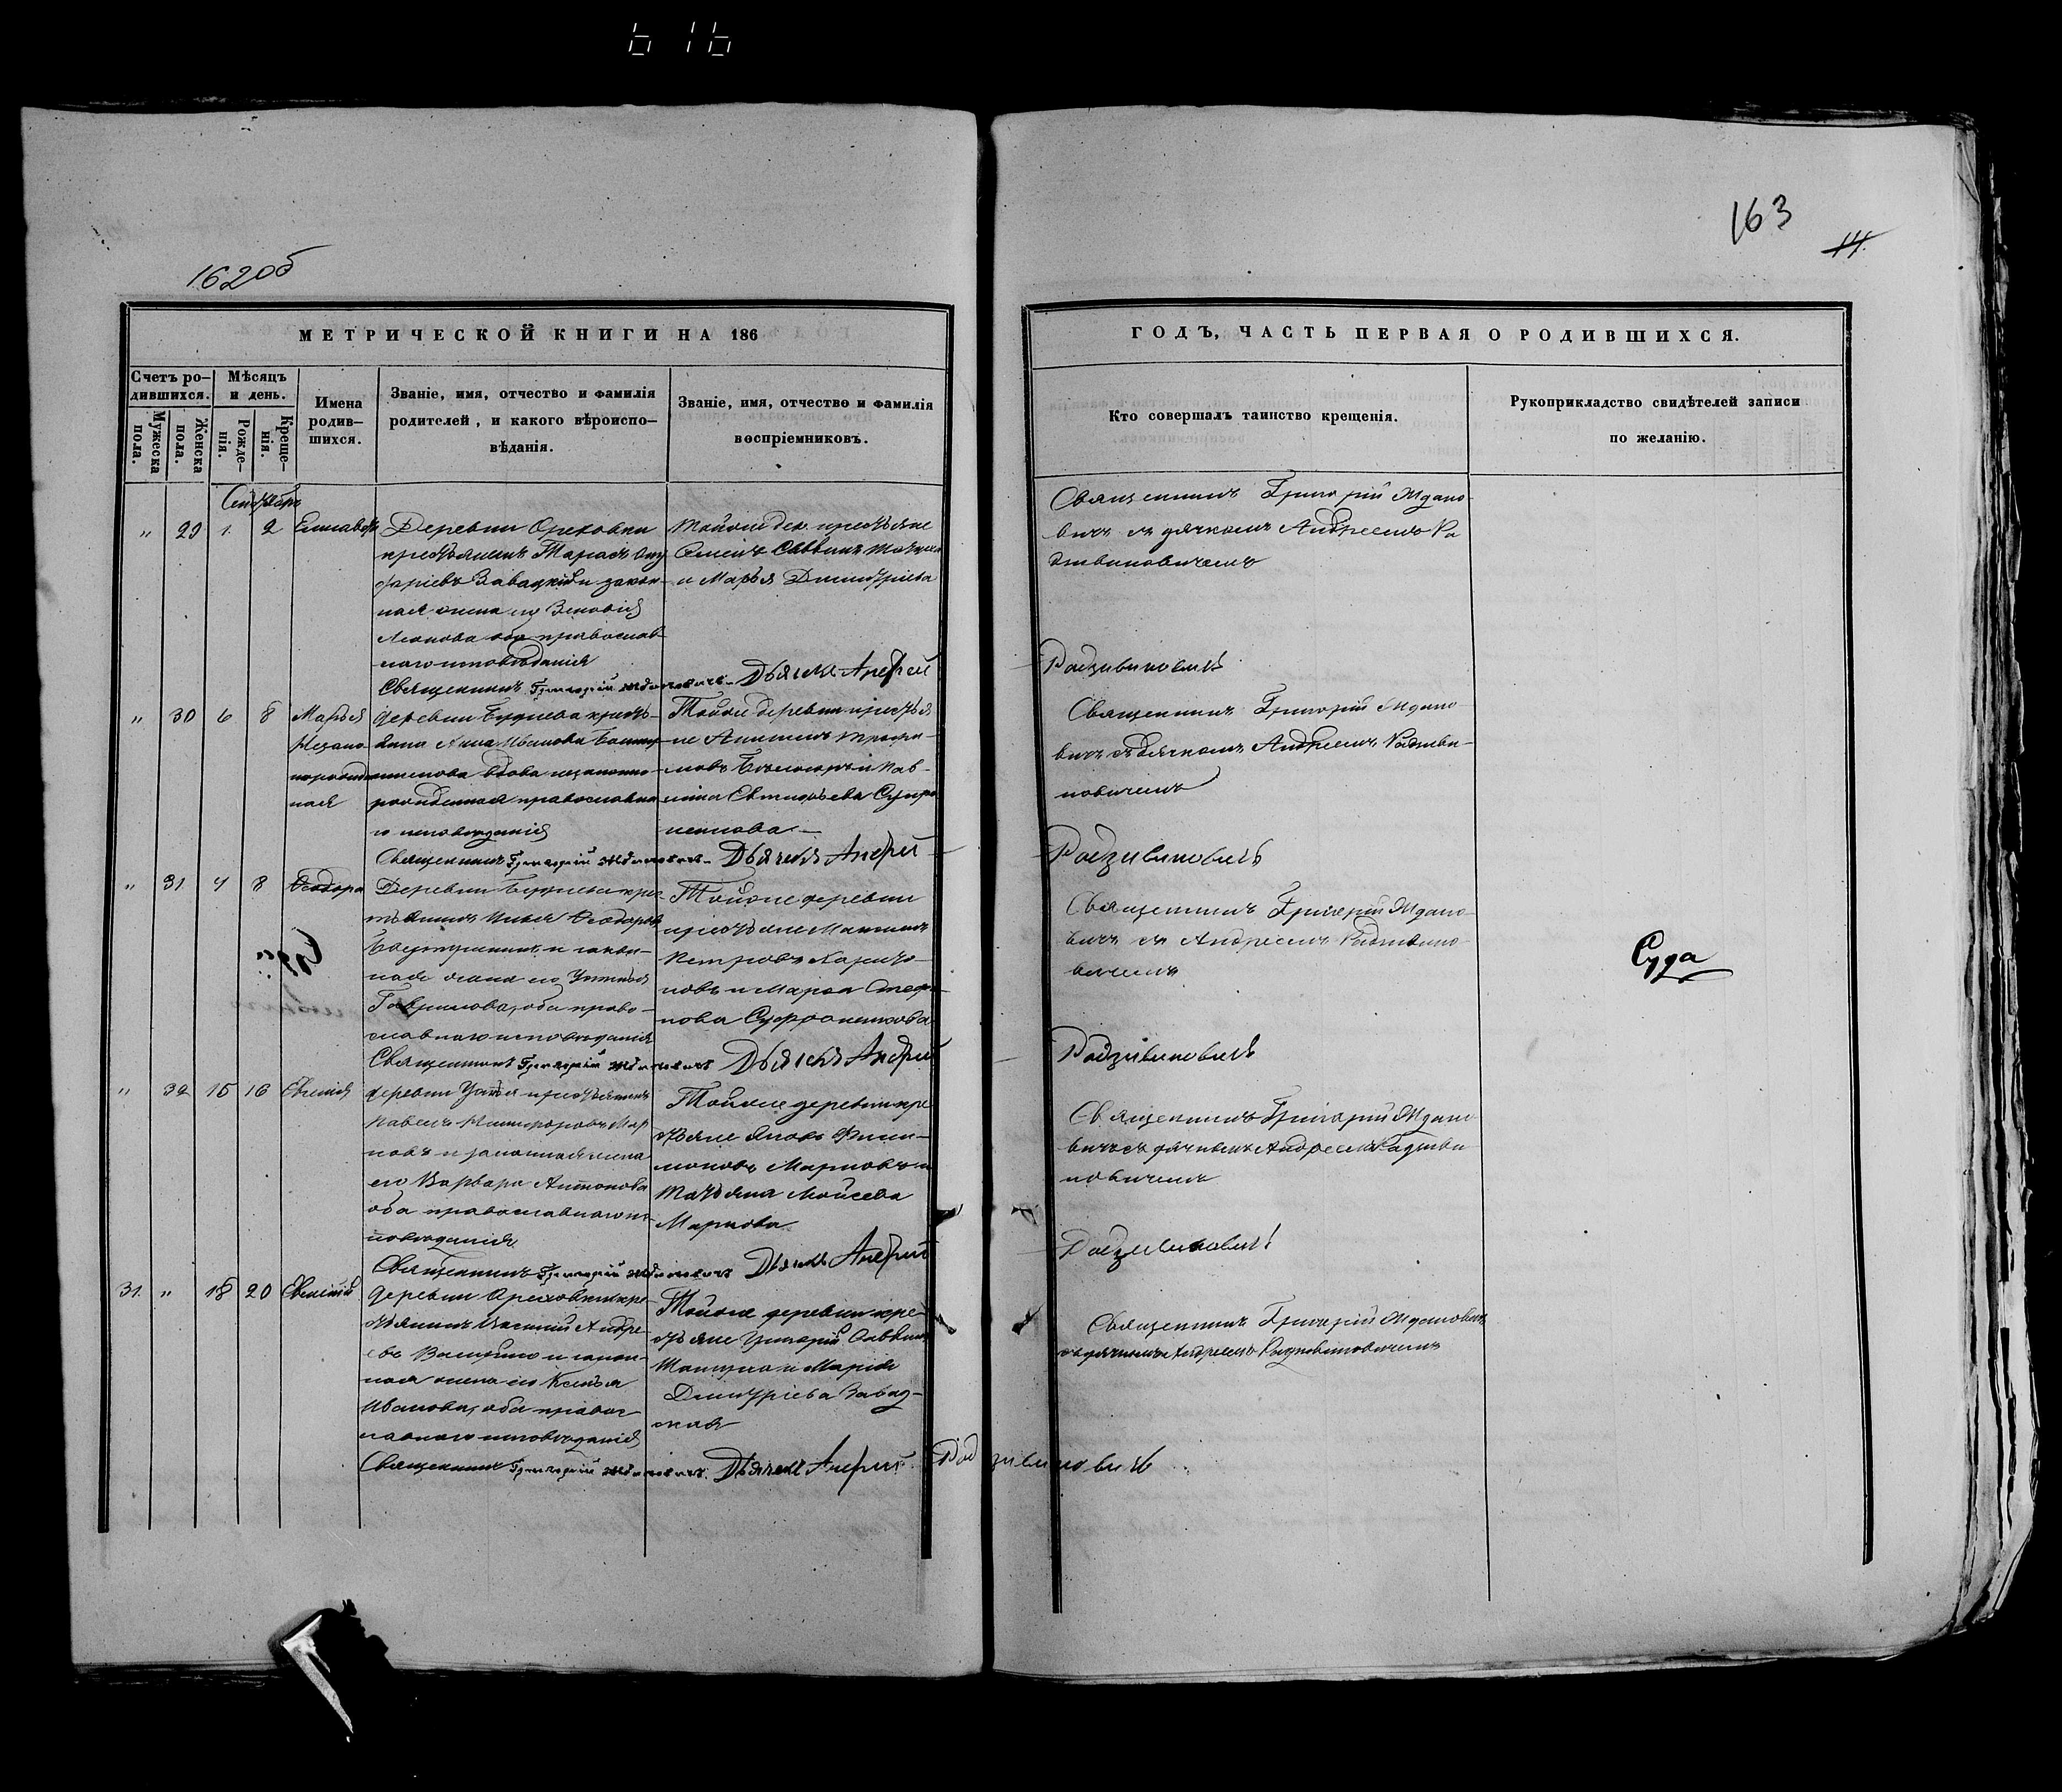 616
162об
163
14.
МЕТРИЧЕСКОЙ КНИГИ НА 186
Счетъ ро-
дившихся.
Мужеска
пола.
Женска
пола.
Мѣсяцъ
и день.
Рожде-
нія.
Креще-
нія.
Имена
родив-
шихся.
Званіе, имя, отчество и фамилія
родителей, и какого вѣроиспо-
вѣданія.
Званіе, имя, отчество и фамилія
воспріемниковъ.
ГОДЪ, ЧАСТЬ ПЕРВАЯ О РОДИВШИХСЯ.
Кто совершалъ таинство крещенія.
Рукоприкладство свидѣтелей записи
по желанію.
Сентябрь
" 29 1. 2 Елисавефа
Деревни Ореховки
крестьянинъ Тарасъ
Завацкій и закон-
ная жена его Зеновія
оба православ
наго исповѣданія
Тойже дер. крестьяне
Саввинъ
и Марья Дмитріева
Священникъ Григорій Ждано-
вичъ съ дячкомъ Андреемъ Ра
дзивиновичемъ
Священникъ Григорій Ждановичъ. Дьячекъ Андрей
Радзивиновичъ
" 30 6 8 Марья
Незако
норожден
ная
деревни крестья-
янка Анна Иванова
вдова незаконно-
рожденная православна
го исповѣданія
Тойже деревни крестья
не
новъ и Пав-
нкова
Священникъ Григорій Ждано
вичъ съ дячкомъ Андреемъ Радзиви-
новичемъ
Священникъ Григорій Ждановичъ. Дьячекъ Андрей
Радзивиновичъ
" 31. 7 8 Ѳеодора
Деревни кре-
стьянинъ Ѳеодоровъ
и закон-
ная жена его
Гаврилова, оба право-
славнаго исповѣданія
Тойже деревни
крестьяне
Петровъ
новъ и Марѳа Стефа-
нова
Священникъ Григорій Ждано-
вичъ съ Андреемъ Радзивино-
вичемъ
Суда
Священникъ Григорій Ждановичъ Дьячекъ Андрей
Радзивиновичъ
" 32 15 16 Евгенія
деревни крестьянинъ
Павелъ Никифоровъ Мар
ковъ и законная жена
его Варвара Антонова
оба православнаго ис-
повѣданія
Тойже деревни кре
стьяне Яковъ Фили-
моновъ Марковъ и
Татьяна Мойсеева
Маркова
Священникъ Григорій Ждано
вичъ съ дячкомъ Андреемъ Радзиви
новичемъ
Священникъ Григорій Ждановичъ Дьячекъ Андрей
Радзивиновичъ
31. " 18 20 Евгеній
деревни Ореховки кре-
стьянинъ Василій Андре-
евъ и закон-
ная жена его Ксенья
Иванова, оба правос
лавнаго исповѣданія
Тойже деревни кре-
стьяне Григорій Саввинъ
и Марія
Дмитріева Завад-
ская
Священникъ Григорій Ждановичъ
съ дячкомъ Андреемъ Радзивиновичемъ
Священникъ Григорій Ждановичъ. Дьячекъ Андрей Радзивиновичъ